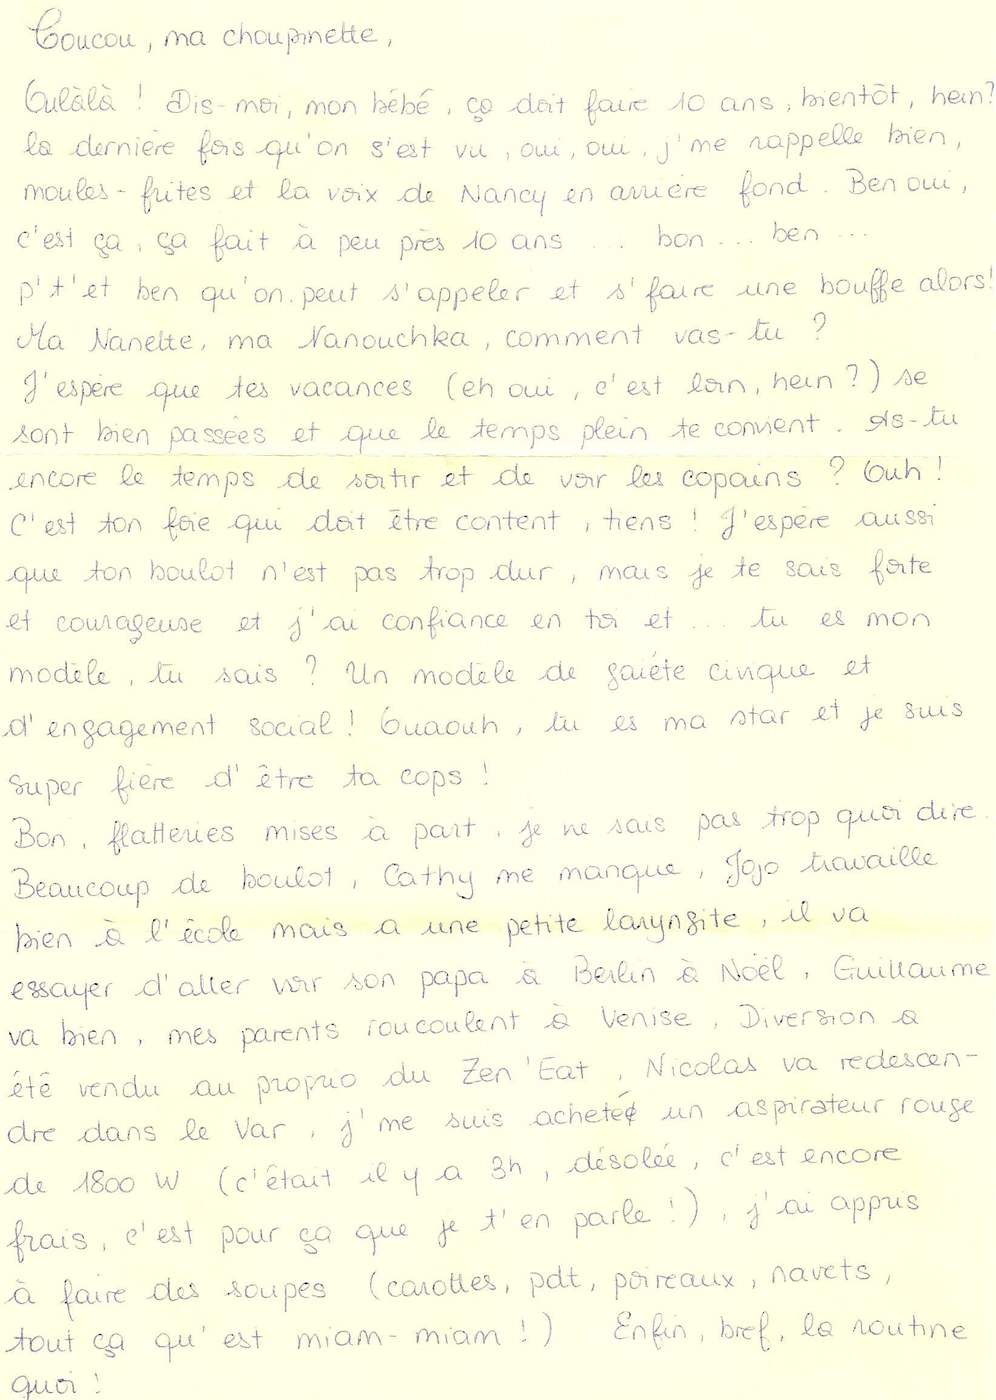 Coucou, ma choupinette,
Oulàlà ! Dis-moi, mon bébé, ça doit faire 10 ans, bientôt, hein?
la dernière fois qu'on s'est vu, oui, oui, j'me rappelle bien,
moules-frites et la voix de Nancy en arrière fond. Ben oui,
c'est ça, ça fait à peu près 10 ans ... bon ... ben ...
p't'et ben qu'on peut s'appeler et s'faire une bouffe alors!
Ma Nanette, ma Nanouchka, comment vas-tu ?
J'espère que tes vacances (eh oui, c'est loin, hein ?) se
sont bien passées et que le temps plein te convient. As-tu
encore le temps de sortir et de voir les copains ? Ouh !
C'est ton foie qui doit être content, tiens ! J'espère aussi
que ton boulot n'est pas trop dur, mais je te sais forte
et courageuse et j'ai confiance en toi et ... tu es mon
modèle, tu sais ? Un modèle de gaiété civique et
d'engagement social ! Ouaouh, tu es ma star et je suis
super fière d'être ta cops !
Bon, flatteries mises à part, je ne sais pas trop quoi dire.
Beaucoup de boulot, Cathy me manque, Jojo travaille
bien à l'école mais a une petite laryngite, il va
essayer d'aller voir son papa à Berlin à Noël, Guillaume
va bien, mes parents roucoulent à Venise, Diversion a
été vendu au proprio du Zen'Eat, Nicolas va redescen-
dre dans le Var, j'me suis acheté un aspirateur rouge
de 1800 W (c'était il y a 3h, désolée, c'est encore
frais, c'est pour ça que je t'en parle !), j'ai appris
à faire des soupes (carottes, pdt, poireaux, navets,
tout ça qu'est miam-miam !) Enfin, bref, la routine
quoi !